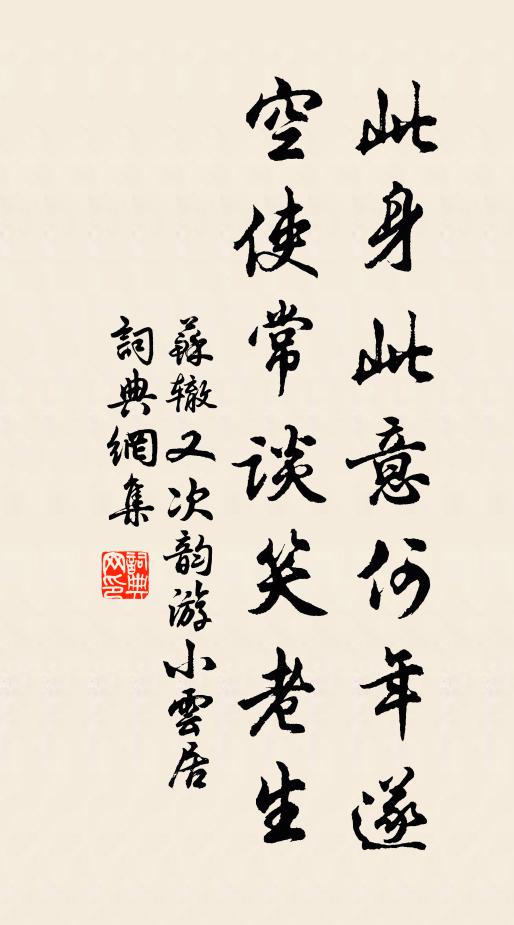 此身此意何年遂
空使常谈笑老生
蘇辙又次韵游小雲居
詞典網集
詞典网印